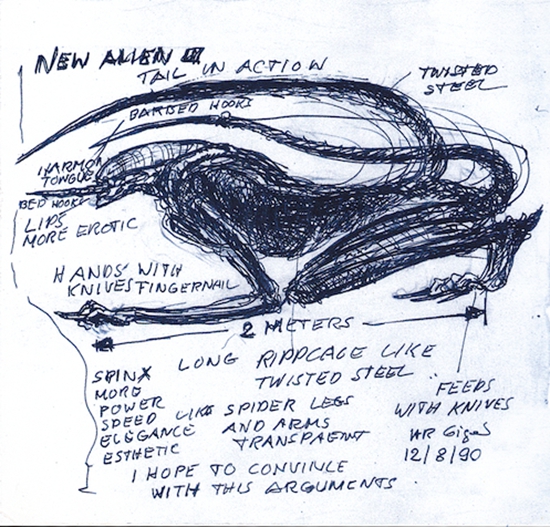 NEW ALIEN III
TAIL IN ACTION
TWISTED
STEEL
BARBED HOOKS
HARMO
TONGUE
BED HOOKS
LIPS
MORE EROTIC
HANDS WITH
KNIVES FINGERNAIL
2 METERS
LONG RIPPCAGE LIKE
TWISTED STEEL
SPINX
MORE
POWER
SPEED
ELEGANCE
ESTHETIC
LIKE SPIDER LEGS
AND ARMS
TRANSPAENT
FEEDS
WITH KNIVES
HR Giger
12/8/90
I HOPE TO CONVINCE
WITH THIS ARGUMENTS